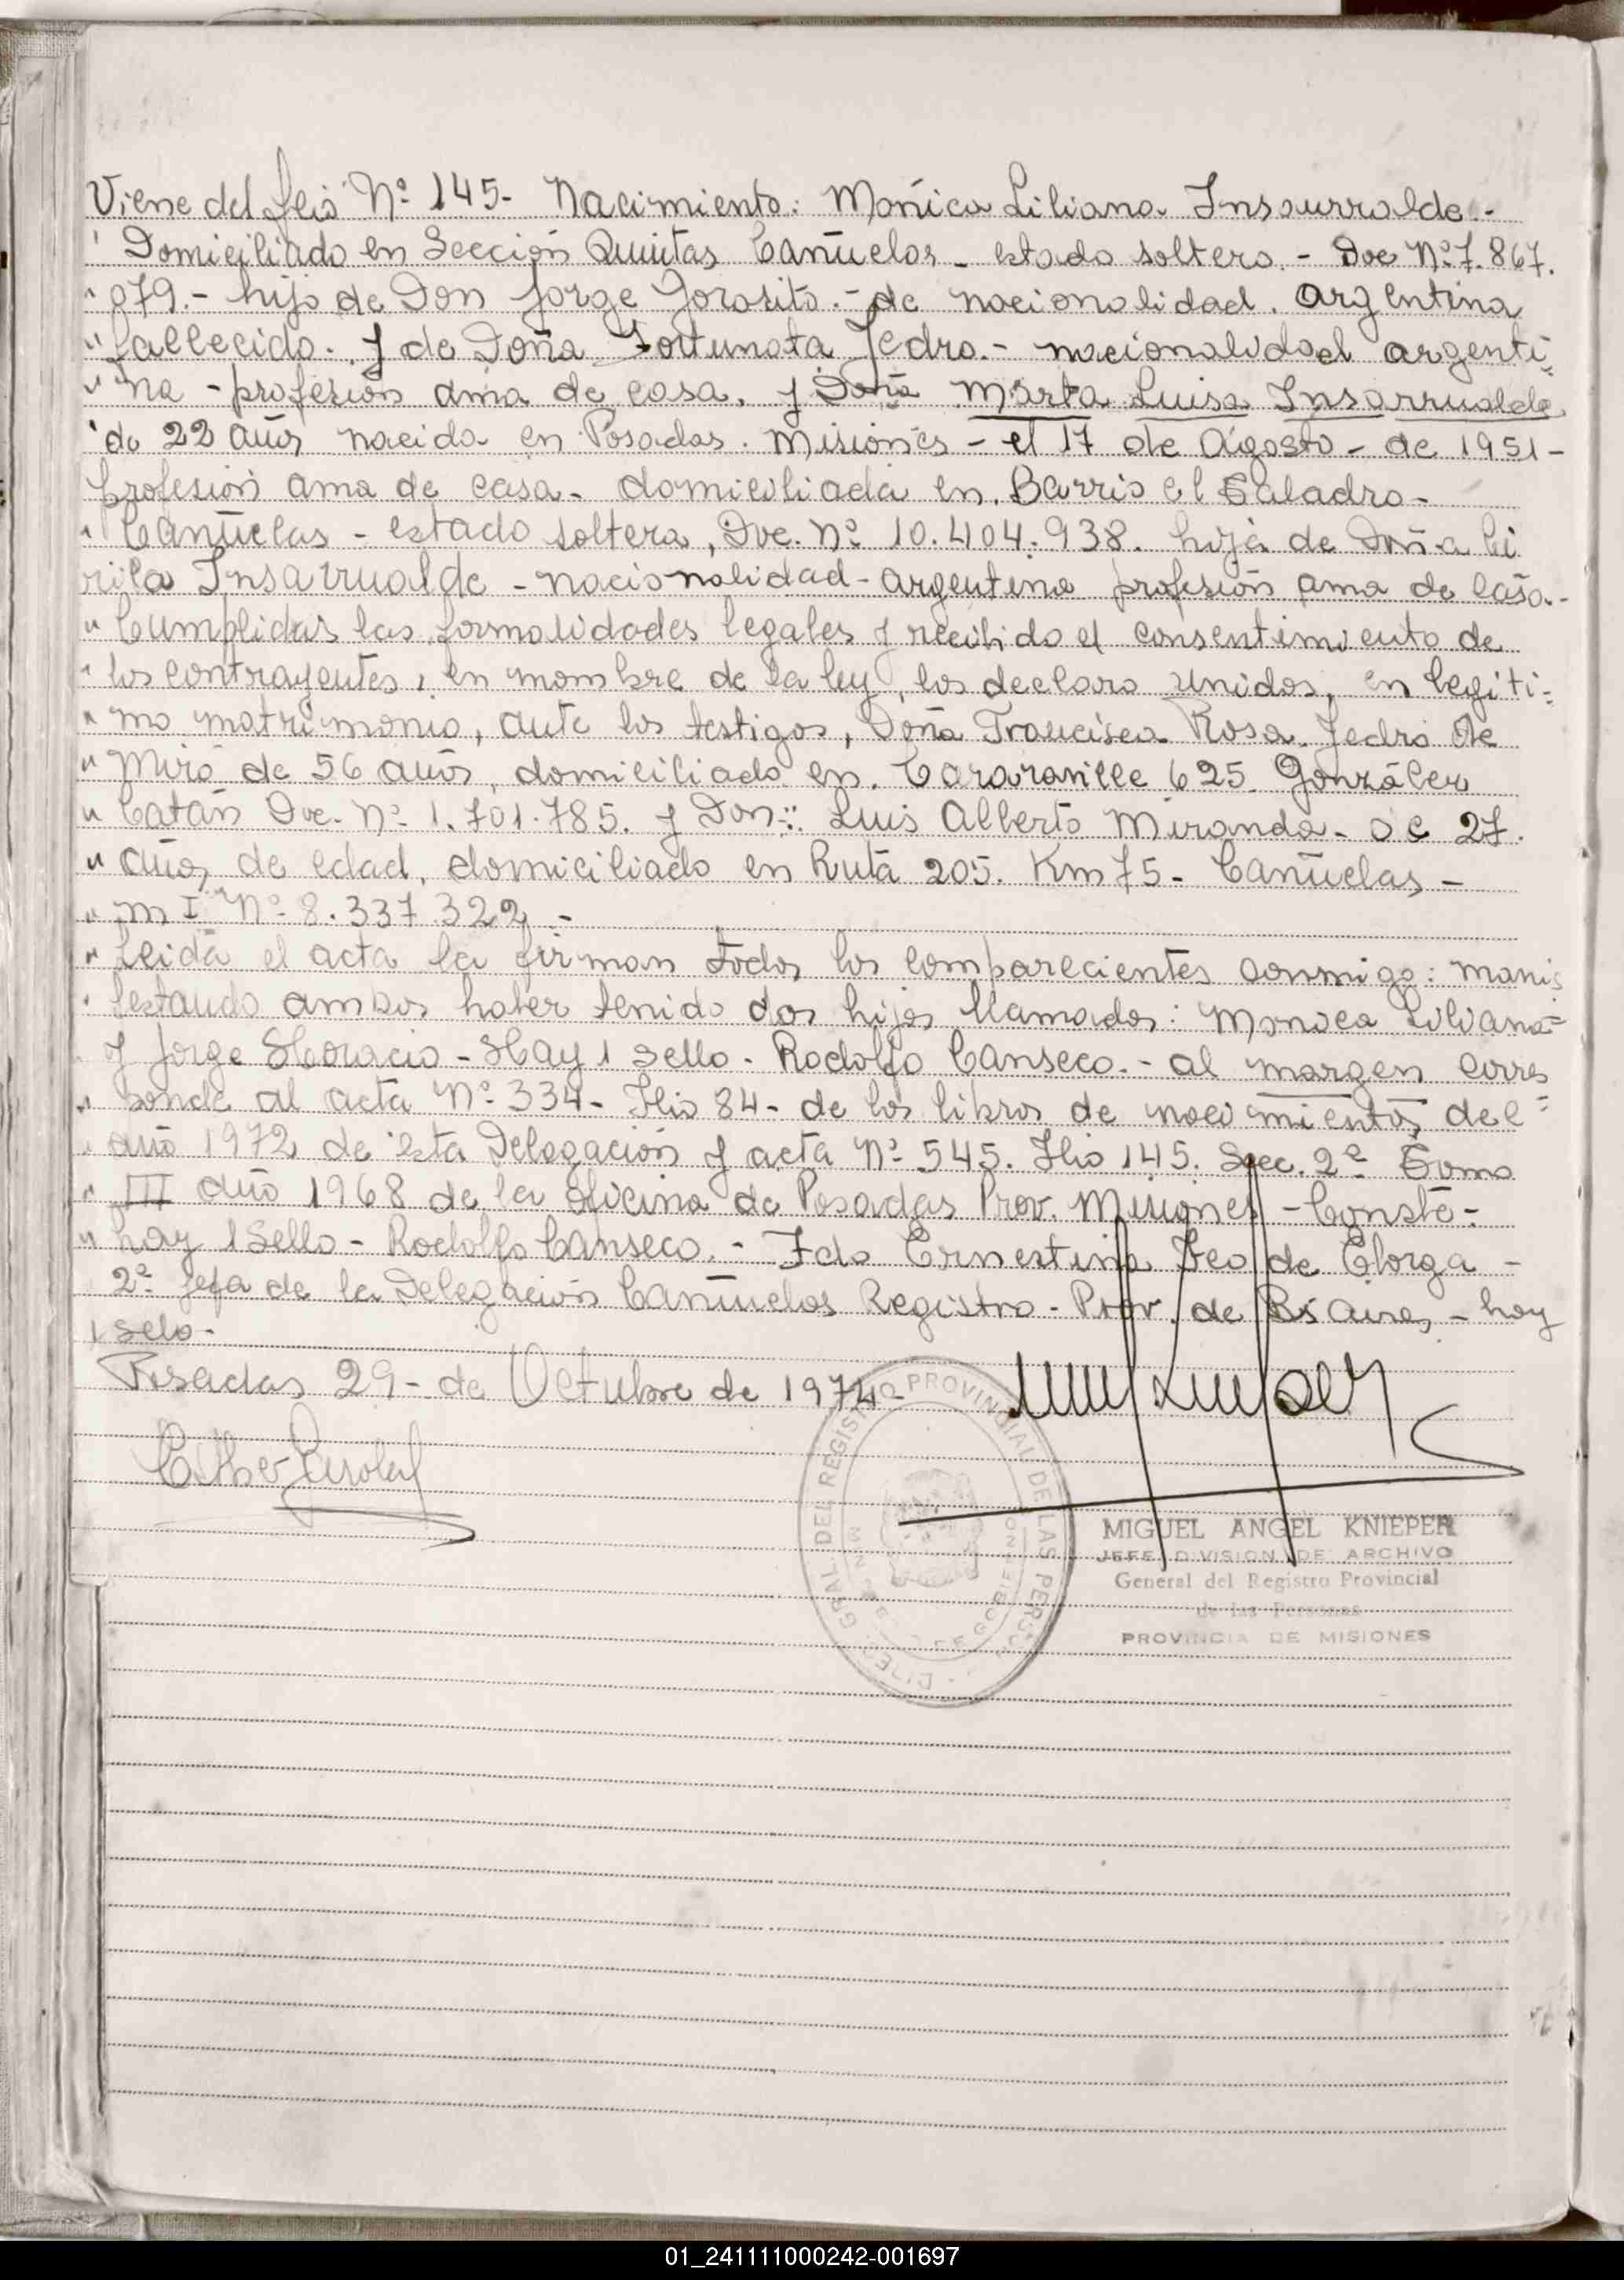 Viene del folio Nº 145- Nacimiento: Monica Liliana Insaurralde.-
" Domiciliado en Sección Quintas Cañuelas - estado soltero.- Doc Nº 7.867.
" 079.- hijo de Don Jorge Gorosito.- de nacionalidad. argentina
" fallecido. y de Doña Fortunata Jedro.- nacionalidad argenti=
" na - profesión ama de casa. y Doña Marta Luisa Insarrualde
" de 22 años nacida en Posadas. Misiones - el 17 de Agosto - de 1951 -
Profesión ama de casa - domiciliada en. Barrio el Taladro -
" Cañuelas - estado soltera, Doc. Nº 10.404.938. hija de Doña Ci
rila Insarrualde - nacionalidad - argentina profesión ama de casa.-
" Cumplidas las formalidades legales y recibido el consentimiento de
" los contrayentes, en nombre de la ley, los declaro unidos, en legiti=
" mo matrimonio, ante los testigos, Doña Francisca Rosa Jedro de
" Miró de 56 años, domiciliado en. 625 González
" Catán Doc. Nº 1.701.785. y Don: Luis Alberto Miranda - de 27.
" años de edad, domiciliado en Ruta 205. Km 75 - Cañuelas -
" M I Nº 8.337.322 -
" Leida el acta la firman todos los comparecientes conmigo: manis
" festando ambos haber tenido dos hijos llamados: Monica Liliana=
" y Jorge Horacio - Hay 1 sello - Rodolfo Canseco.- al margen corres
" ponde al acta Nº 334 - Flio 84 - de los libros de nacimientos del=
" año 1972 de esta Delegación y acta Nº 545. Flio 145. Secc. 2ª Tomo
" III año 1968 de la oficina de Posadas Prov. Misiones - Conste -
" hay 1 Sello - Rodolfo Canseco.- Fdo Ernestina Feo de Elorga -
2ª jefa de la Delegación Cañuelas Registro - Prov. de Bs Aires - hay
1 sello -
Posadas 29 - de Octubre de 1974 -
DIREC. GRAL. DEL REGISTRO PROVINCIAL DE LAS PERSONAS
MIGUEL ANGEL KNIEPER
JEFE DIVISION DE ARCHIVO
General del Registro Provincial
de las Personas
PROVINCIA DE MISIONES
01_241111000242-001697